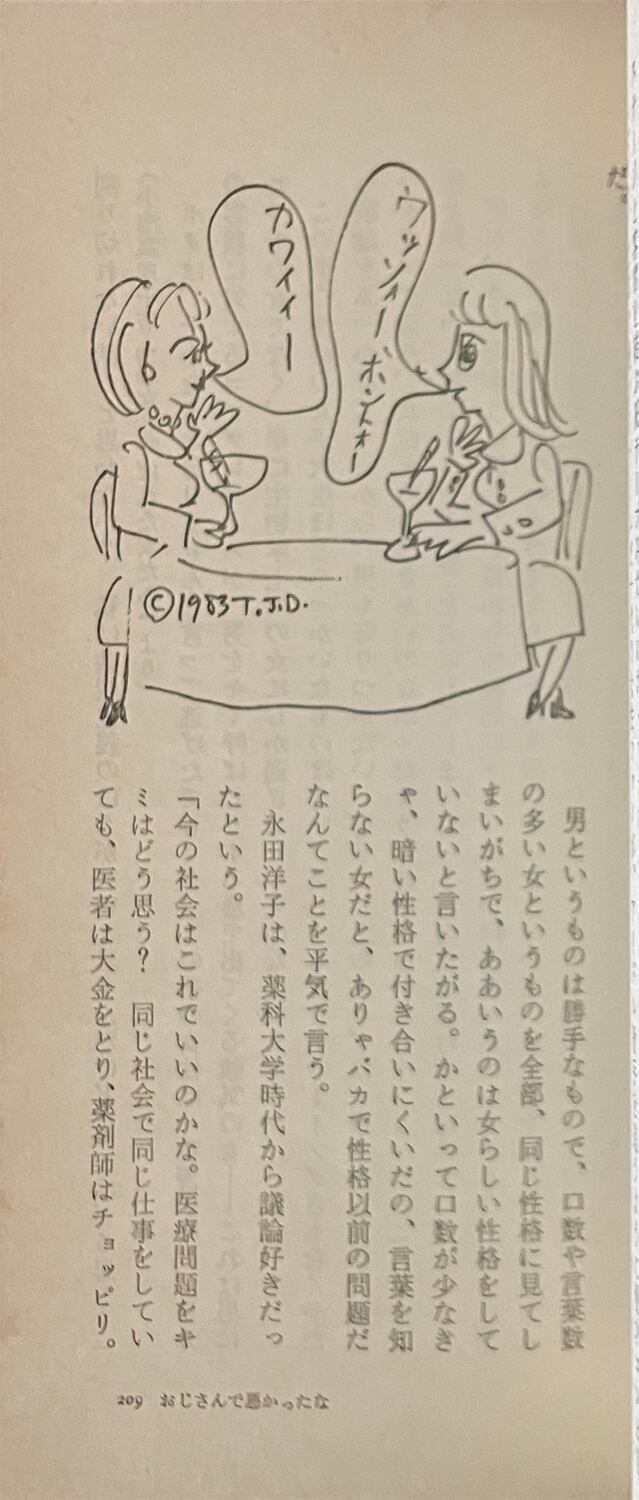 ウッソォー
ホントォー
カワイイー
©1983 T.J.D.
男というものは勝手なもので、口数や言葉数
の多い女というものを全部、同じ性格に見てし
まいがちで、ああいうのは女らしい性格をして
いないと言いたがる。かといって口数が少なき
ゃ、暗い性格で付き合いにくいだの、言葉を知
らない女だと、ありゃバカで性格以前の問題だ
なんてことを平気で言う。
永田洋子は、薬科大学時代から議論好きだっ
たという。
「今の社会はこれでいいのかな。医療問題をキ
ミはどう思う？　同じ社会で同じ仕事をしてい
ても、医者は大金をとり、薬剤師はチョッピリ。
209 おじさんで悪かったな